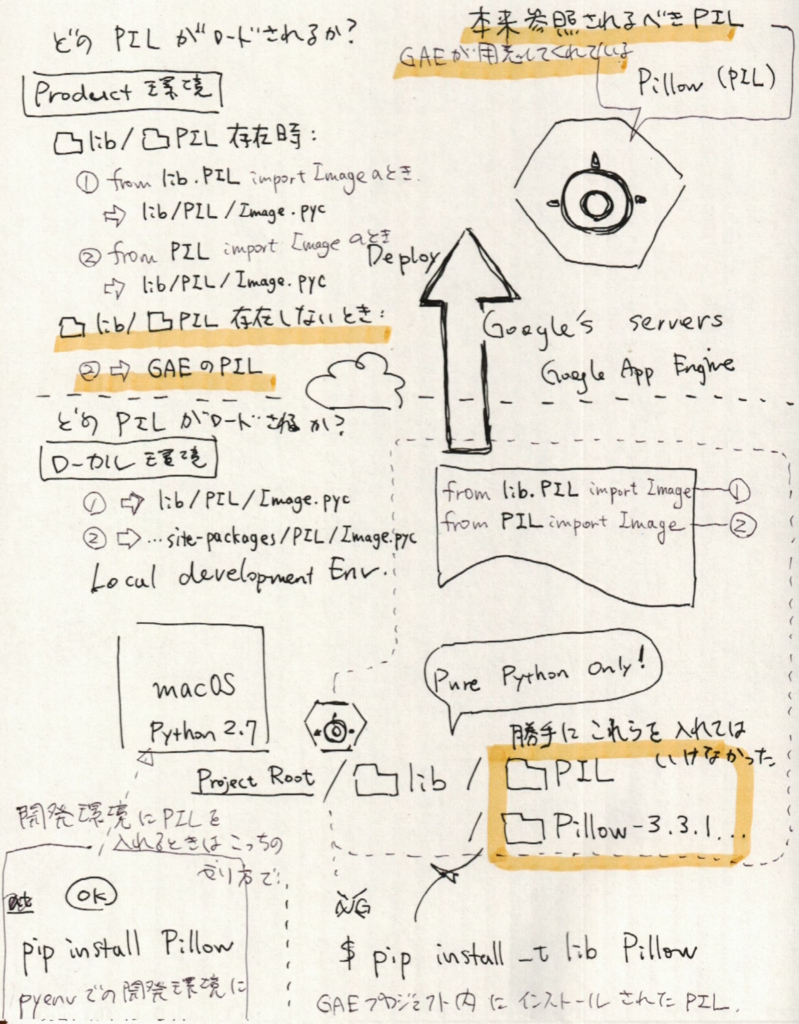 どの PIL がロードされるか?
Product 環境
lib/ PIL 存在時:
① from lib.PIL import Image のとき.
⇨ lib/PIL/Image.pyc
② from PIL import Image のとき
⇨ lib/PIL/Image.pyc
lib/ PIL 存在しないとき:
② ⇨ GAEのPIL
本来参照されるべきPIL
GAEが用意してくれている
Pillow (PIL)
Deploy
Google's servers
Google App Engine
どの PIL がロードされるか?
ローカル環境
① ⇨ lib/PIL/Image.pyc
② ⇨ ...site-packages/PIL/Image.pyc
Local development Env.
from lib.PIL import Image ①
from PIL import Image ②
macOS
Python 2.7
Pure Python Only!
勝手に これらを 入れては
いけなかった
Project Root / lib / PIL
/ Pillow-3.3.1...
開発環境にPILを
入れるときはこっちの
やり方で:
OK
pip install Pillow
pyenvでの開発環境に
NG
$ pip install -t lib Pillow
GAEプロジェクト内 に インストール された PIL.